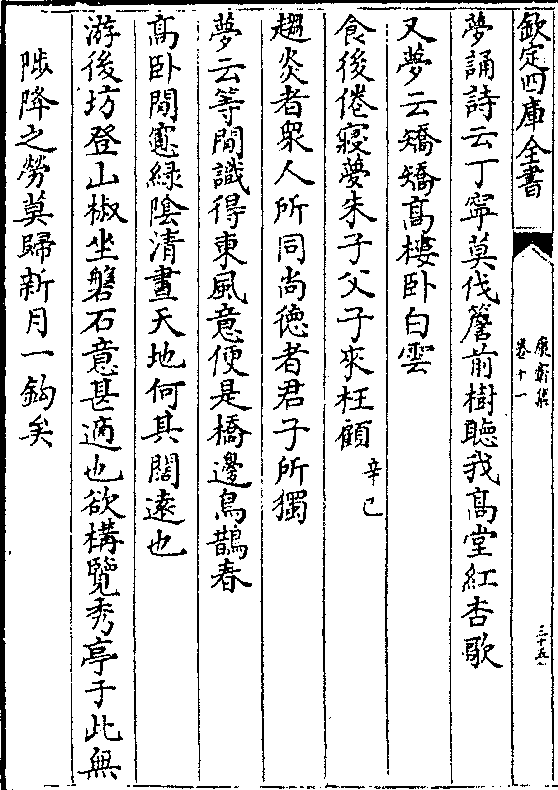 欽定四庫全書
康齋集
卷十一
三十五
夢誦詩云丁寧莫伐簷前樹聽我髙堂紅杏歌
又夢云矯矯髙樓卧白雲
食後倦寢夢朱子父子來枉顧辛巳
趨炎者衆人所同尚徳者君子所獨
夢云等閒識得東風意便是橋邊鳥鵲春
髙卧閒窻綠陰清晝天地何其闊遠也
游後坊登山椒坐磐石意甚適也欲構覽秀亭于此無
陟降之勞莫歸新月一鈎矣